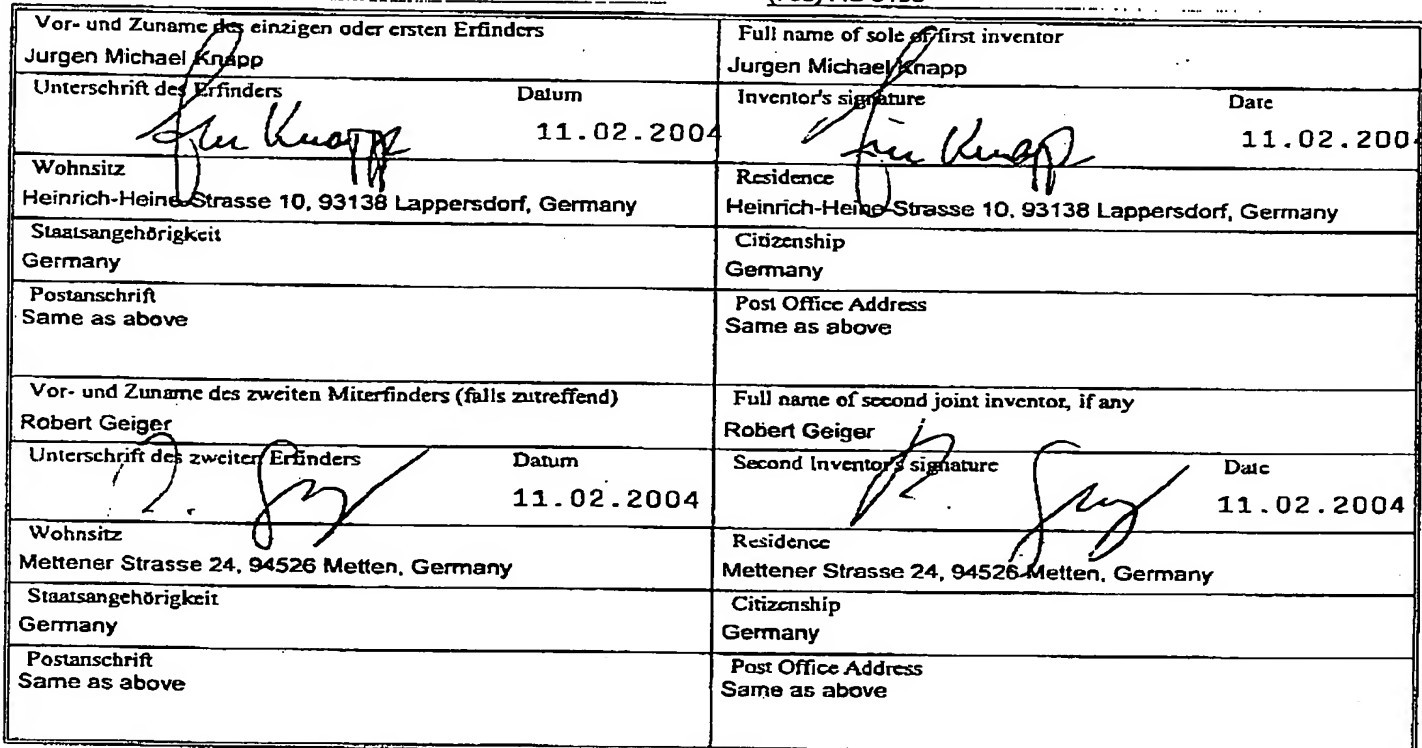 Vor- und Zuname des einzigen oder ersten Erfinders
Jurgen Michael Knapp
Unterschrift des Erfinders Datum
Knapp 11.02.2004
Wohnsitz
Heinrich-Heine-Strasse 10, 93138 Lappersdorf, Germany
Staatsangehörigkeit
Germany
Postanschrift
Same as above
Vor- und Zuname des zweiten Miterfinders (falls zutreffend)
Robert Geiger
Unterschrift des zweiten Erfinders Datum
11.02.2004
Wohnsitz
Mettener Strasse 24, 94526 Metten, Germany
Staatsangehörigkeit
Germany
Postanschrift
Same as above
Full name of sole or first inventor
Jurgen Michael Knapp
Inventor's signature Date
Knapp 11.02.200
Residence
Heinrich-Heine-Strasse 10, 93138 Lappersdorf, Germany
Citizenship
Germany
Post Office Address
Same as above
Full name of second joint inventor, if any
Robert Geiger
Second Inventor's signature Date
11.02.2004
Residence
Mettener Strasse 24, 94526 Metten, Germany
Citizenship
Germany
Post Office Address
Same as above